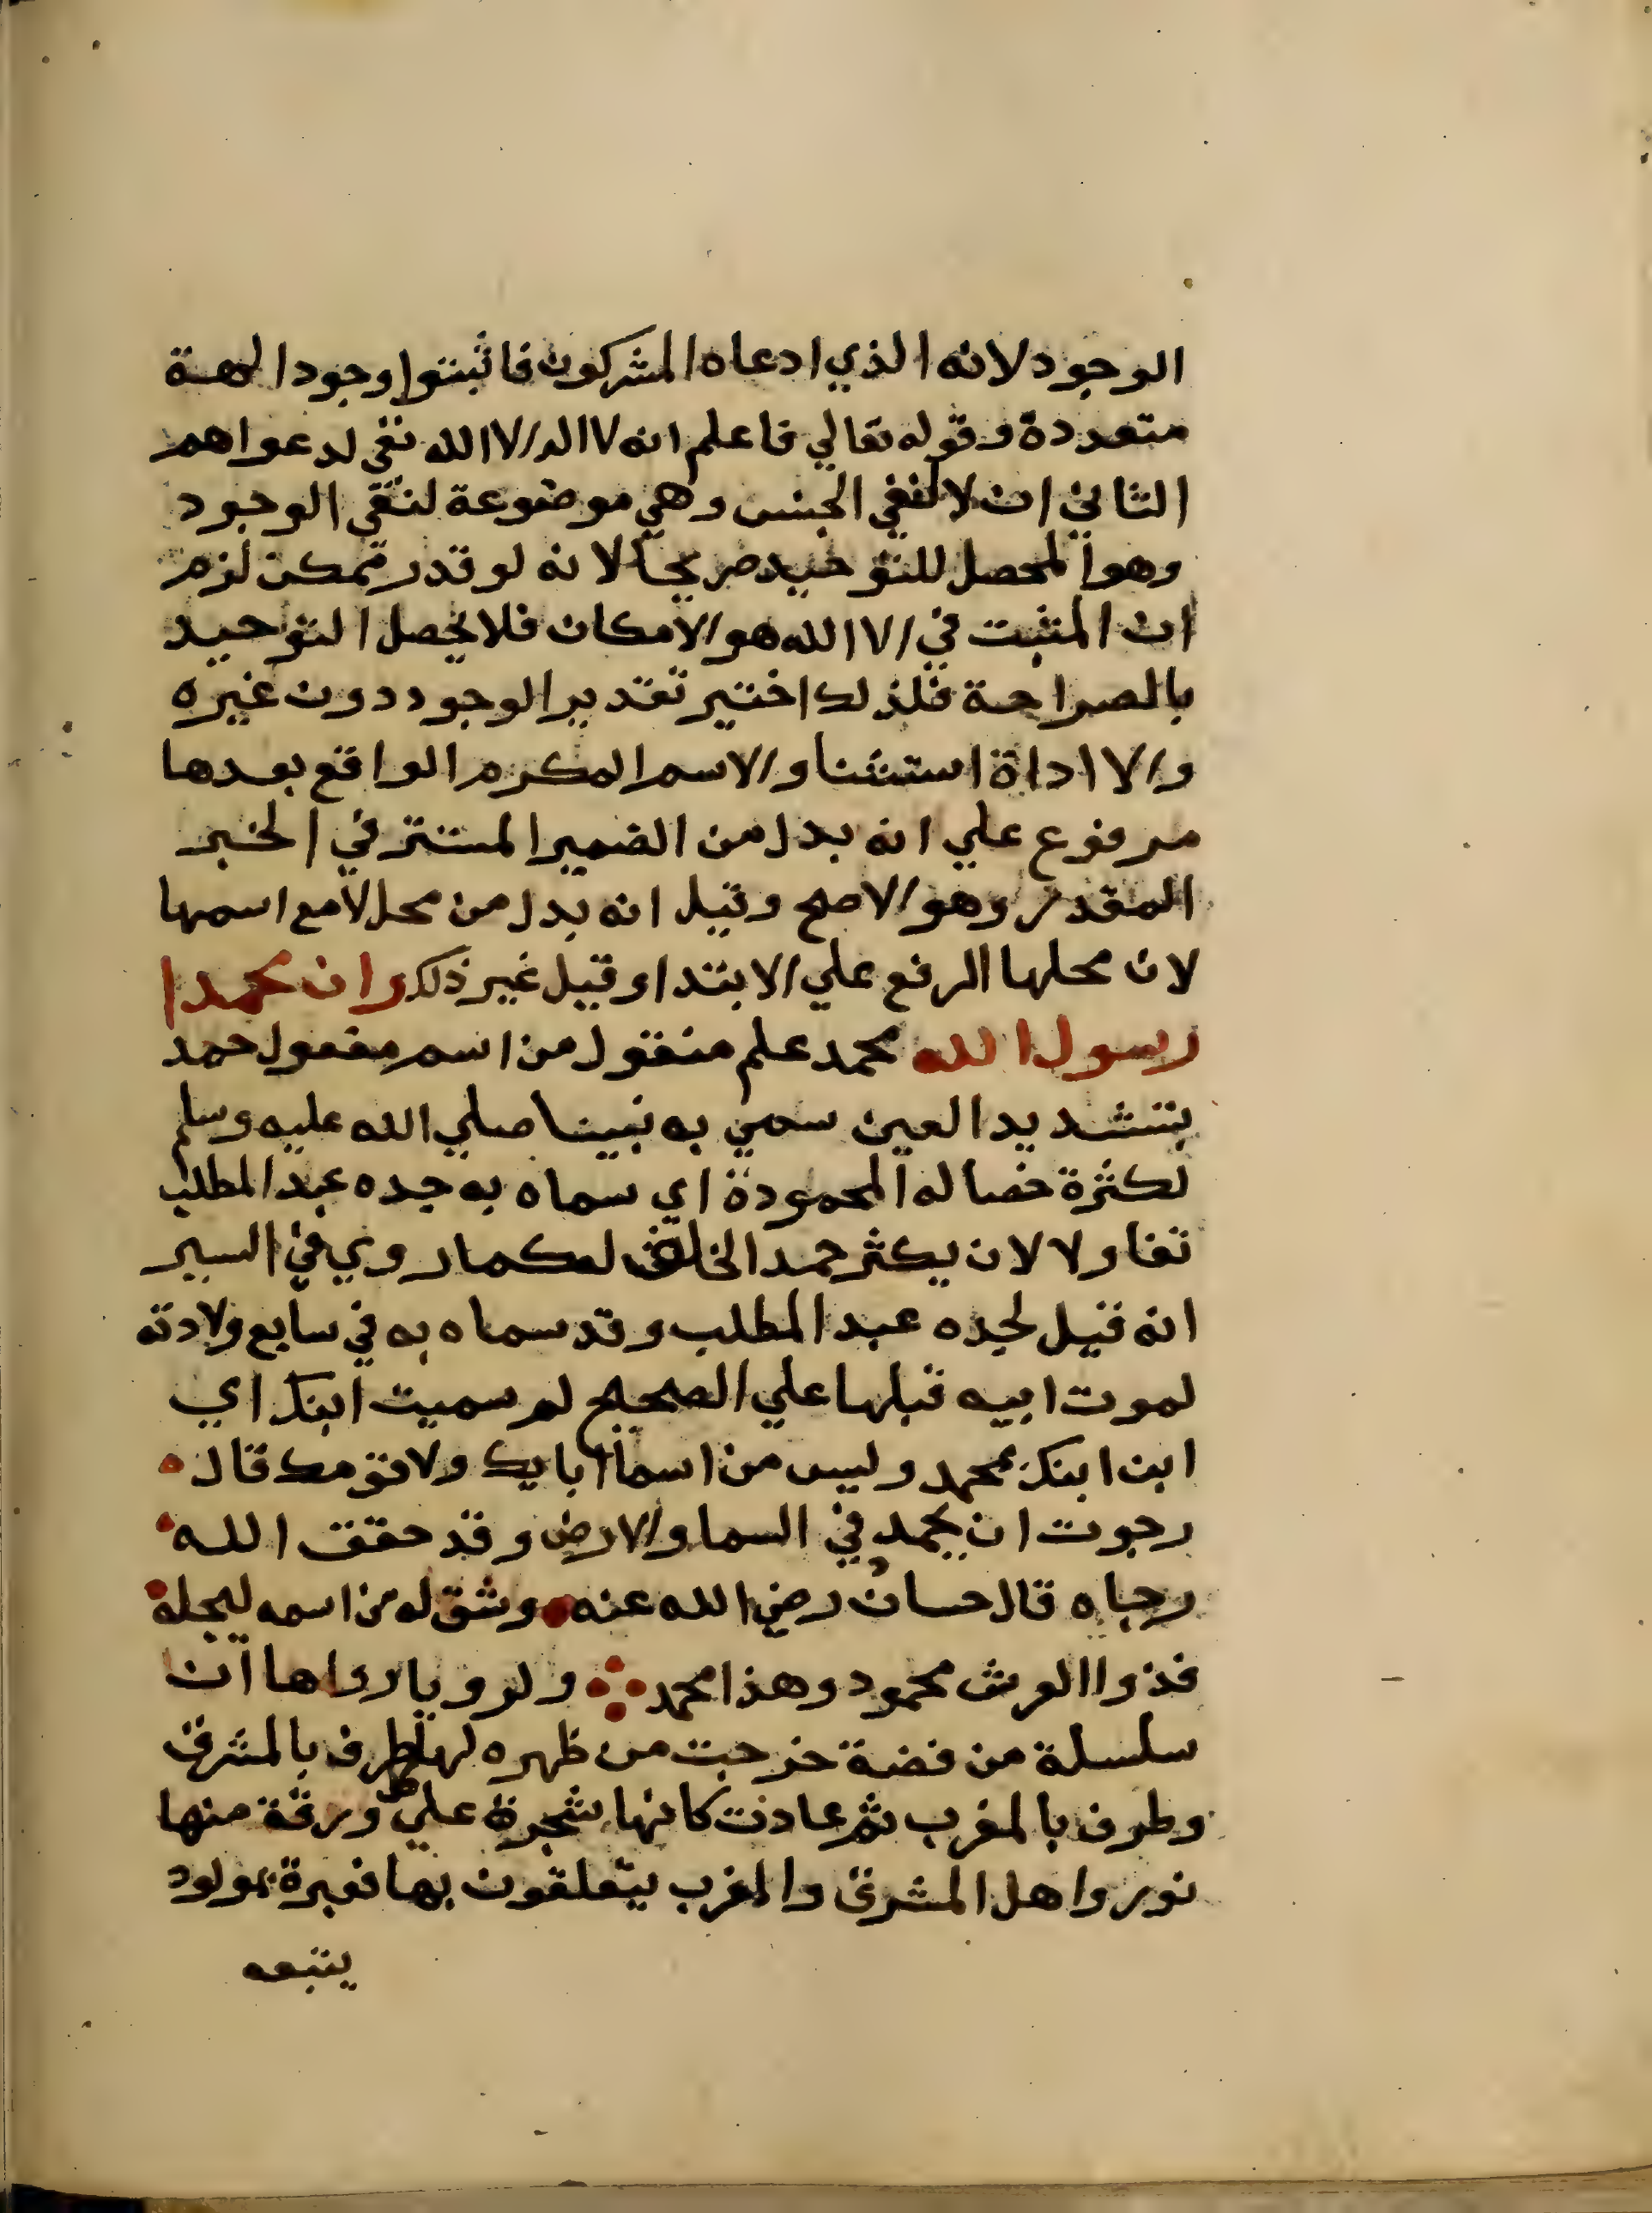 الوجود لانه الذي ادعاه المشركون فاثبتوا وجود الهة
متعددة وقوله تعالي فاعلم انه لا اله الا الله نفي لدعواهم
الثاني ان لا لنفي الجنس وهي موضوعة لنفي الوجود
وهو المحصل للتوحيد صريحا لانه لو قدر ممكن لزم
ان المثبت في الا الله هو الامكان فلا يحصل التوحيد
بالصراحة فلذلك اختير تقدير الوجود دون غيره
والا اداة استثنا والاسم المكرم الواقع بعدها
مرفوع علي انه بدل من الضمير المستتر في الخبر
المقدر وهو الاصح وقيل انه بدل من محل لا مع اسمها
لان محلها الرفع علي الابتدا وقيل غير ذلك وان محمدا
رسول الله محمد علم منقول من اسم مفعول حمد
بتشديد العين سمي به نبينا صلي الله عليه وسلم
لكثرة خصاله المحمودة اي سماه به جده عبد المطلب
تفاولا لان يكثر حمد الخلق له كما روي في السير
انه قيل لجده عبد المطلب وقد سماه به في سابع ولادته
لموت ابيه قبلها علي الصحيح لم سميت ابنك اي
ابن ابنك بمحمد وليس من اسما ابايك ولا قومك قال
رجوت ان يحمد في السما والارض وقد حقق الله
رجاه قال حسان رضي الله عنه وشق له من اسمه ليجله
فذوا العرش محمود وهذا محمد ولرويا راها ان
سلسلة من فضة خرجت من ظهره لها طرف بالمشرق
وطرف بالمغرب ثم عادت كانها شجرة علي كل ورقة منها
نور واهل المشرق والمغرب يتعلقون بها فعبرة بمولود
يتبعه